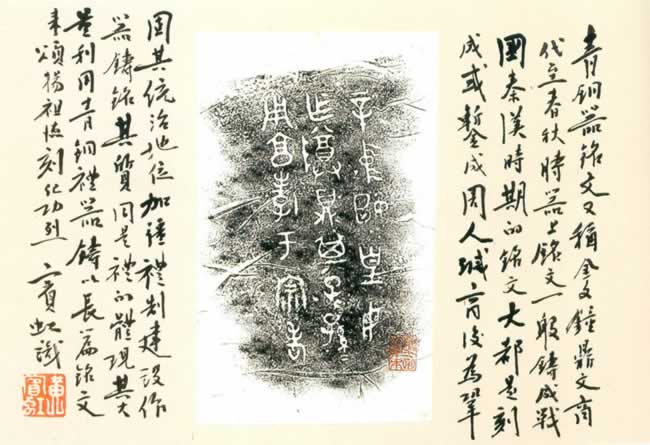 青銅器銘文又稱金文鐘鼎文商
代至春秋時器上銘文一般鑄成戰
國秦漢時期的銘文大都是刻
成或鏨成周人滅商後為鞏
用享孝于宗老
固其統治地位加強禮制建設作
器鑄銘其質同是禮的體現其大
量利用青銅禮器鑄以長篇銘文
來頌揚祖德刻紀功烈 賓虹識
黃賓虹